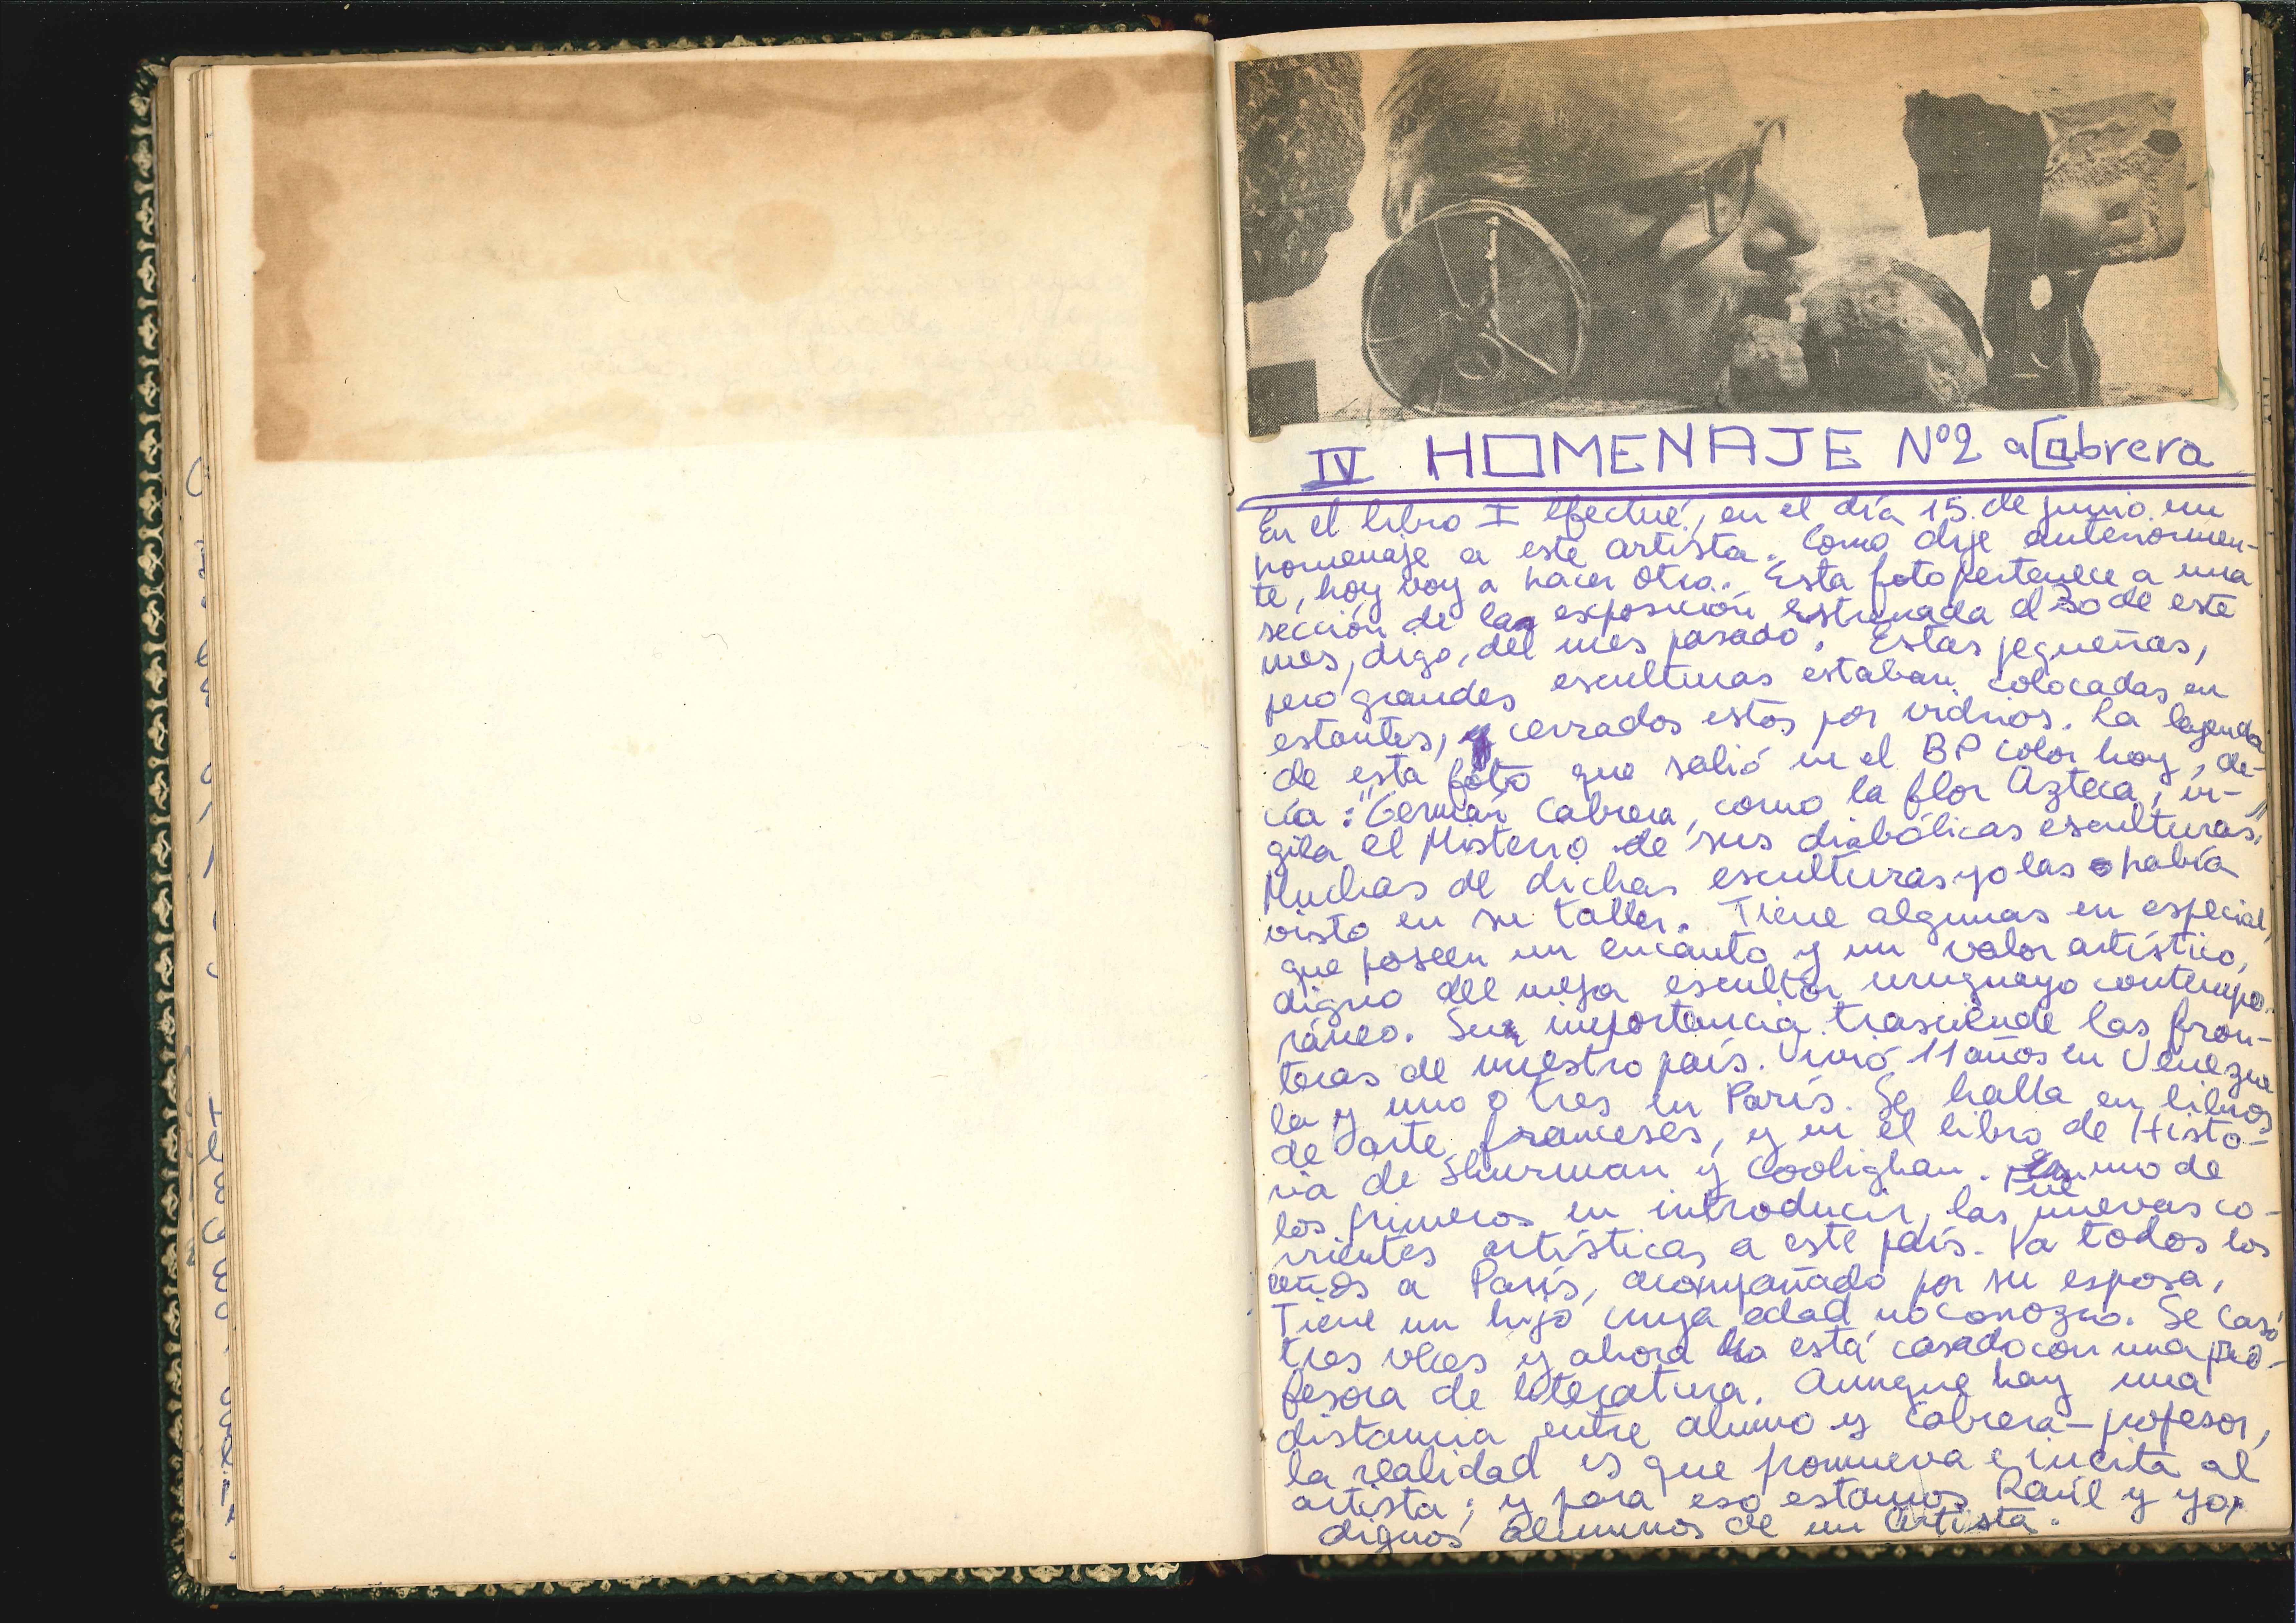 IV HOMENAJE Nº2 a Cabrera
En el libro I efectué, en el día 15 de junio un
homenaje a este artista. Como dije anteriormen-
te, hoy voy a hacer otro. Esta foto pertenece a una
sección de la exposición estrenada el 30 de este
mes, digo, del mes pasado. Estas pequeñas,
pero grandes esculturas estaban colocadas en
estantes, y cerrados estos por vidrios. La leyenda
de esta foto que salió en el BP Color hoy, de-
cía: "Germán Cabrera, como la flor Azteca, vi-
gila el Misterio de sus diabólicas esculturas."
Muchas de dichas esculturas yo las había
visto en su taller. Tiene algunas en especial,
que poseen un encanto y un valor artístico,
digno del mejor escultor uruguayo contempo-
ráneo. Su importancia trasciende las fron-
teras de nuestro país. Vivió 11 años en Venezue
la y uno o tres en París. Se halla en libros
de arte franceses, y en el libro de Histo-
ria de Shurman y Coolighan. Fue uno de
los primeros en introducir, las nuevas co-
rrientes artísticas a este país. Va todos los
años a París, acompañado por su esposa,
Tiene un hijo cuya edad no conozco. Se casó
tres veces y ahora está casado con una pro-
fesora de literatura. Aunque hay una
distancia entre alumno y Cabrera-profesor,
la realidad es que promueva e incita al
artista; y para eso estamos Raúl y yo,
dignos alumnos de un Artista.